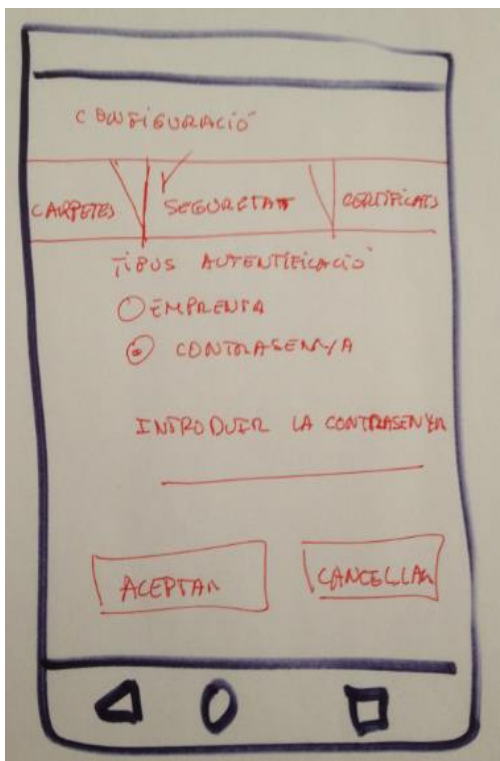 CONFIGURACIÓ
CARPETES SEGURETAT CERTIFICATS
TIPUS AUTENTIFICACIÓ
EMPRENTA
CONTRASENYA
INTRODUIR LA CONTRASENYA
ACEPTAR CANCEL·LAR